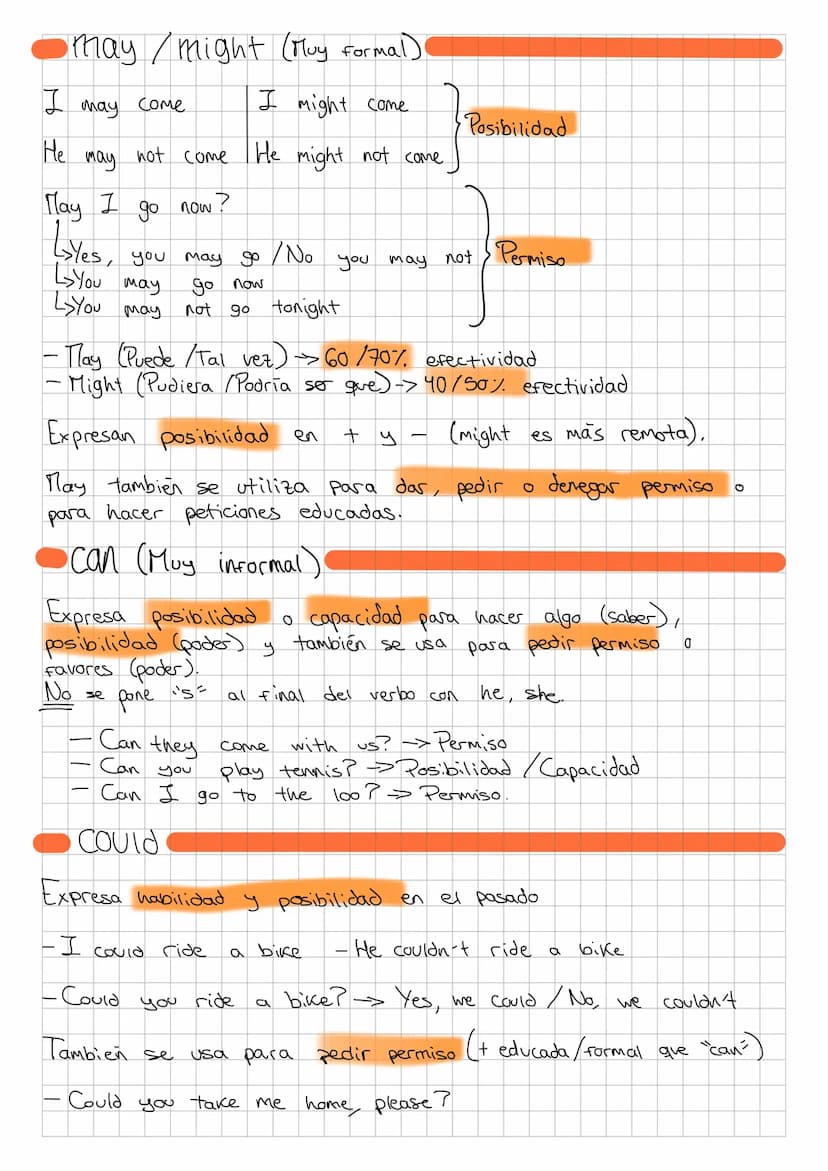 may / might (Muy formal)
I may come | I might come
Posibilidad
He may not come | He might not come
May I go now?
↳Yes, you may go / No you may not
Permiso
↳You may go now
↳You may not go tonight
- May (Puede / Tal vez) → 60/70% efectividad
- Might (Pudiera / Podría ser que) -> 40/50% efectividad
Expresan posibilidad en + y - (might es más remota).
May también se utiliza para dar, pedir o denegar permiso o
para hacer peticiones educadas.
can (Muy informal)
Expresa posibilidad o capacidad para hacer algo (saber),
posibilidad (poder) y también se usa para pedir permiso o
favores (poder).
No se pone "s" al final del verbo con he, she.
- Can they come with us? → Permiso
- Can you play tennis? → Posibilidad / Capacidad
- Can I go to the loo? → Permiso.
could
Expresa habilidad y posibilidad en el pasado
- I could ride a bike - He couldn't ride a bike
- Could you ride a bike? → Yes, we could / No, we couldn't
También se usa para pedir permiso (+ educada / formal que "can")
- Could you take me home, please?